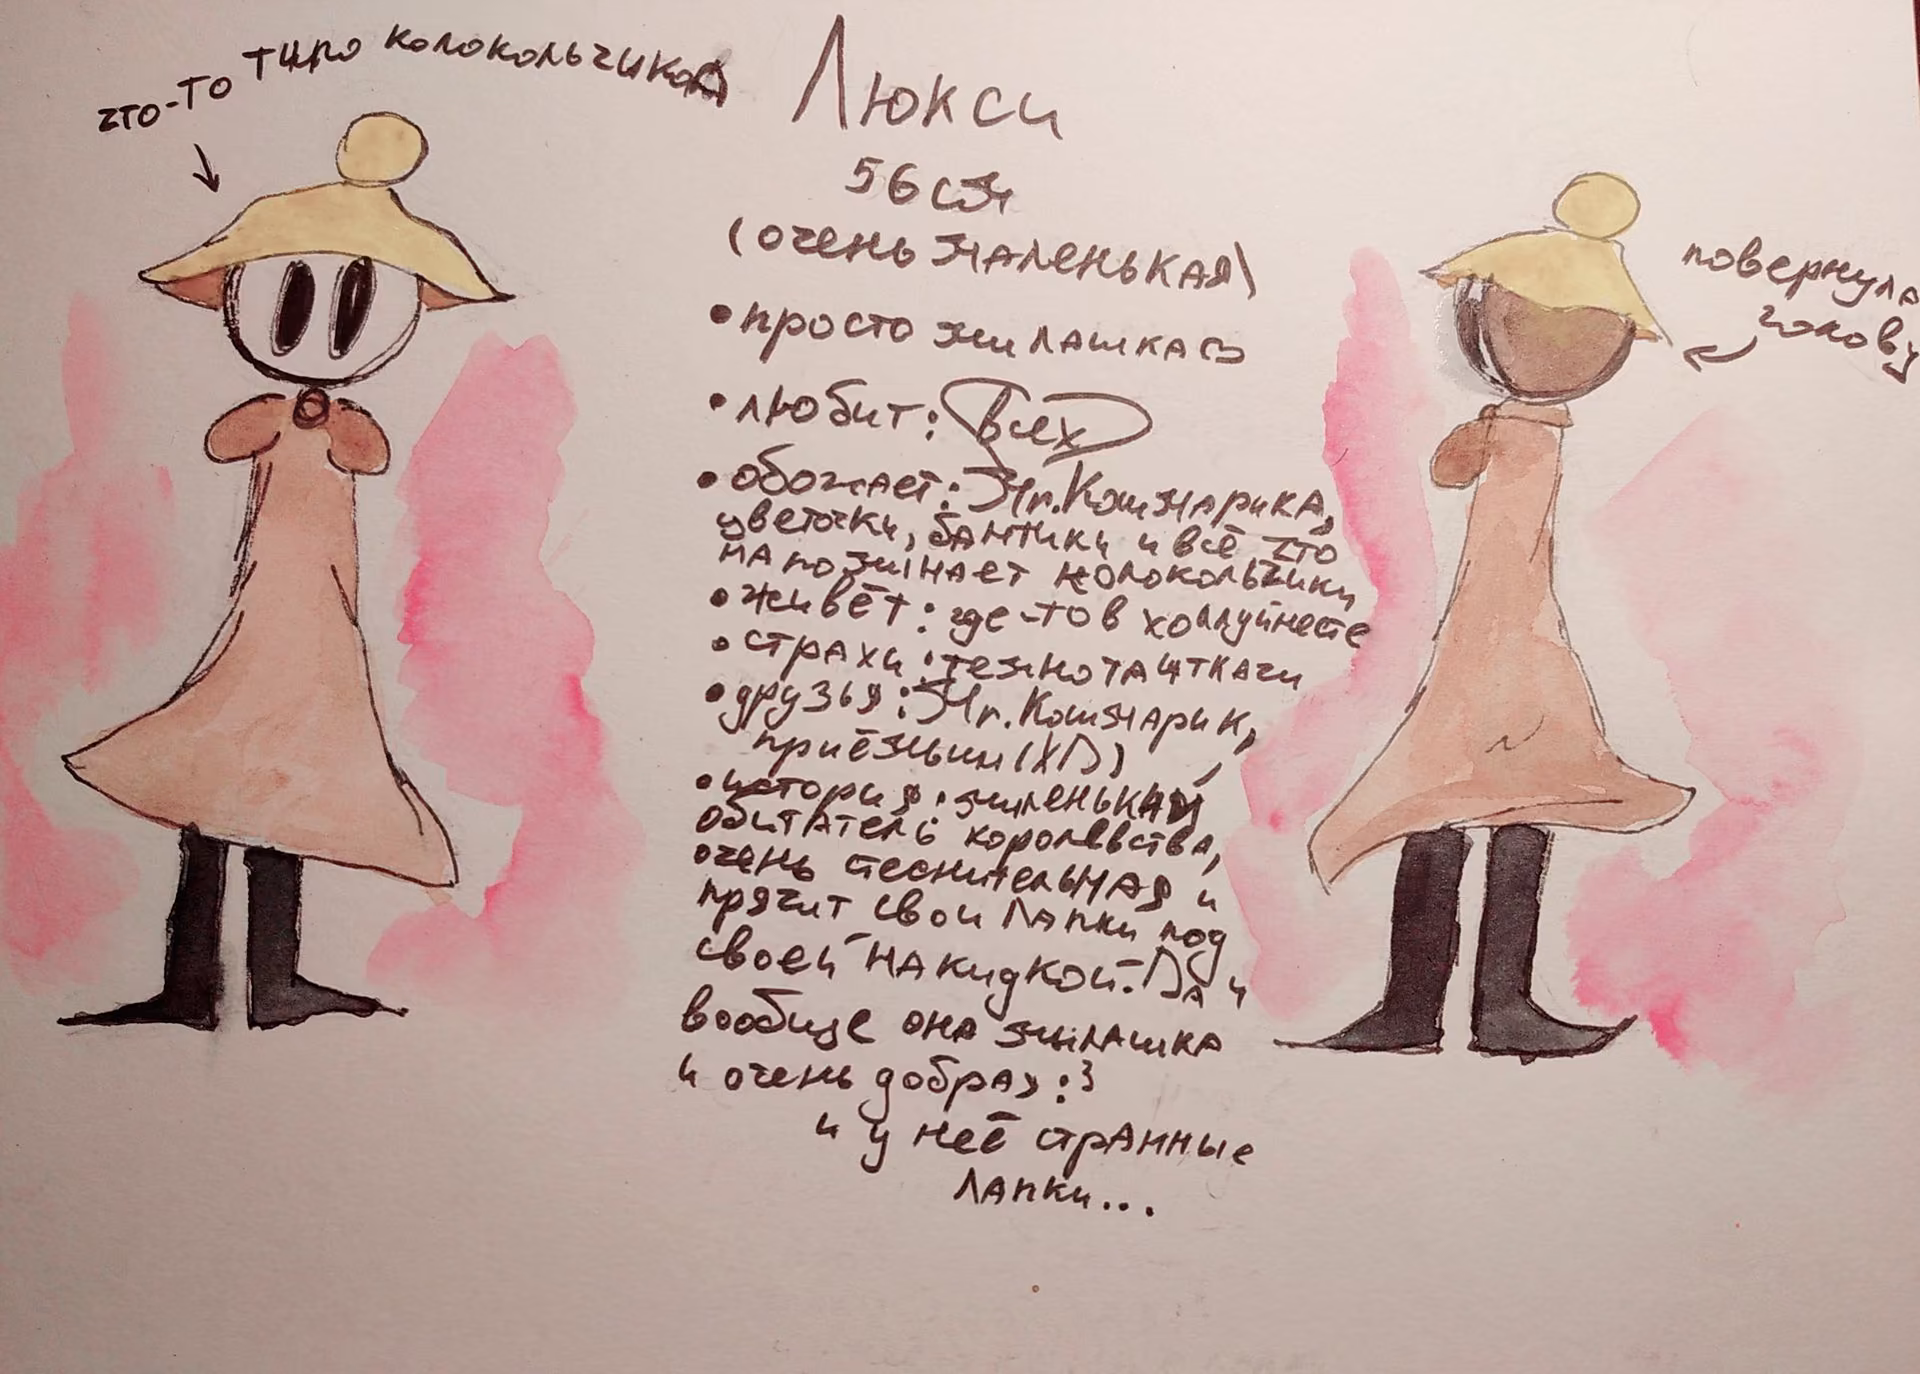 что-то типо колокольчика
Люкси
56 см
(очень маленькая)
повернула
голову
• просто милашка
• любит: всех
• обожает: Мг. Кошмарика,
цветочки, бантики и всё что
напоминает колокольчики
• живёт: где-то в холлуйнесте
• страхи: темнота и ткачи
• друзья: Мг. Кошмарик,
приёмыш (XD)
• история: миленькая
обитатель королевства,
очень стеснительная и
прячит свои лапки под
своей накидкой. Да и
вообще она милашка
и очень добрая :3
и у неё странные
лапки...